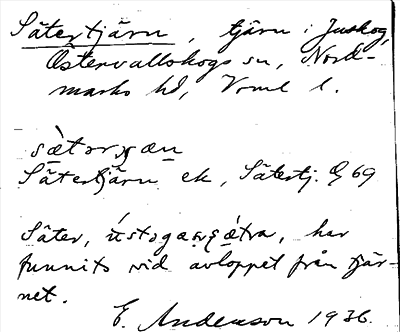 Sätertjärn, tjärn i Juskog,
Östervallskogs sn, Nord-
marks hd, Vrml l.
sætərҗæn
Sätertjärn ek, Sätertj. G 69
Säter,
har
funnits vid avloppet från tjär-
net.
E. Andersson 1936.